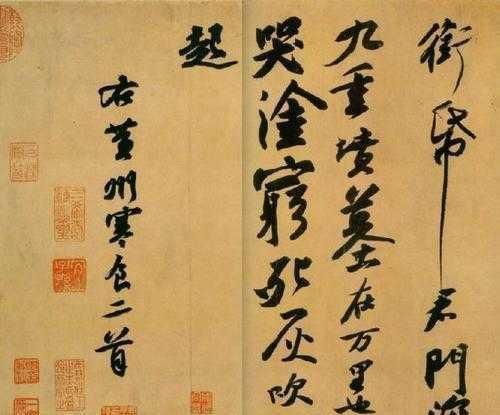 銜帋君門深
九重墳墓在万里也
哭塗窮死灰吹
起
右黃州寒食二首